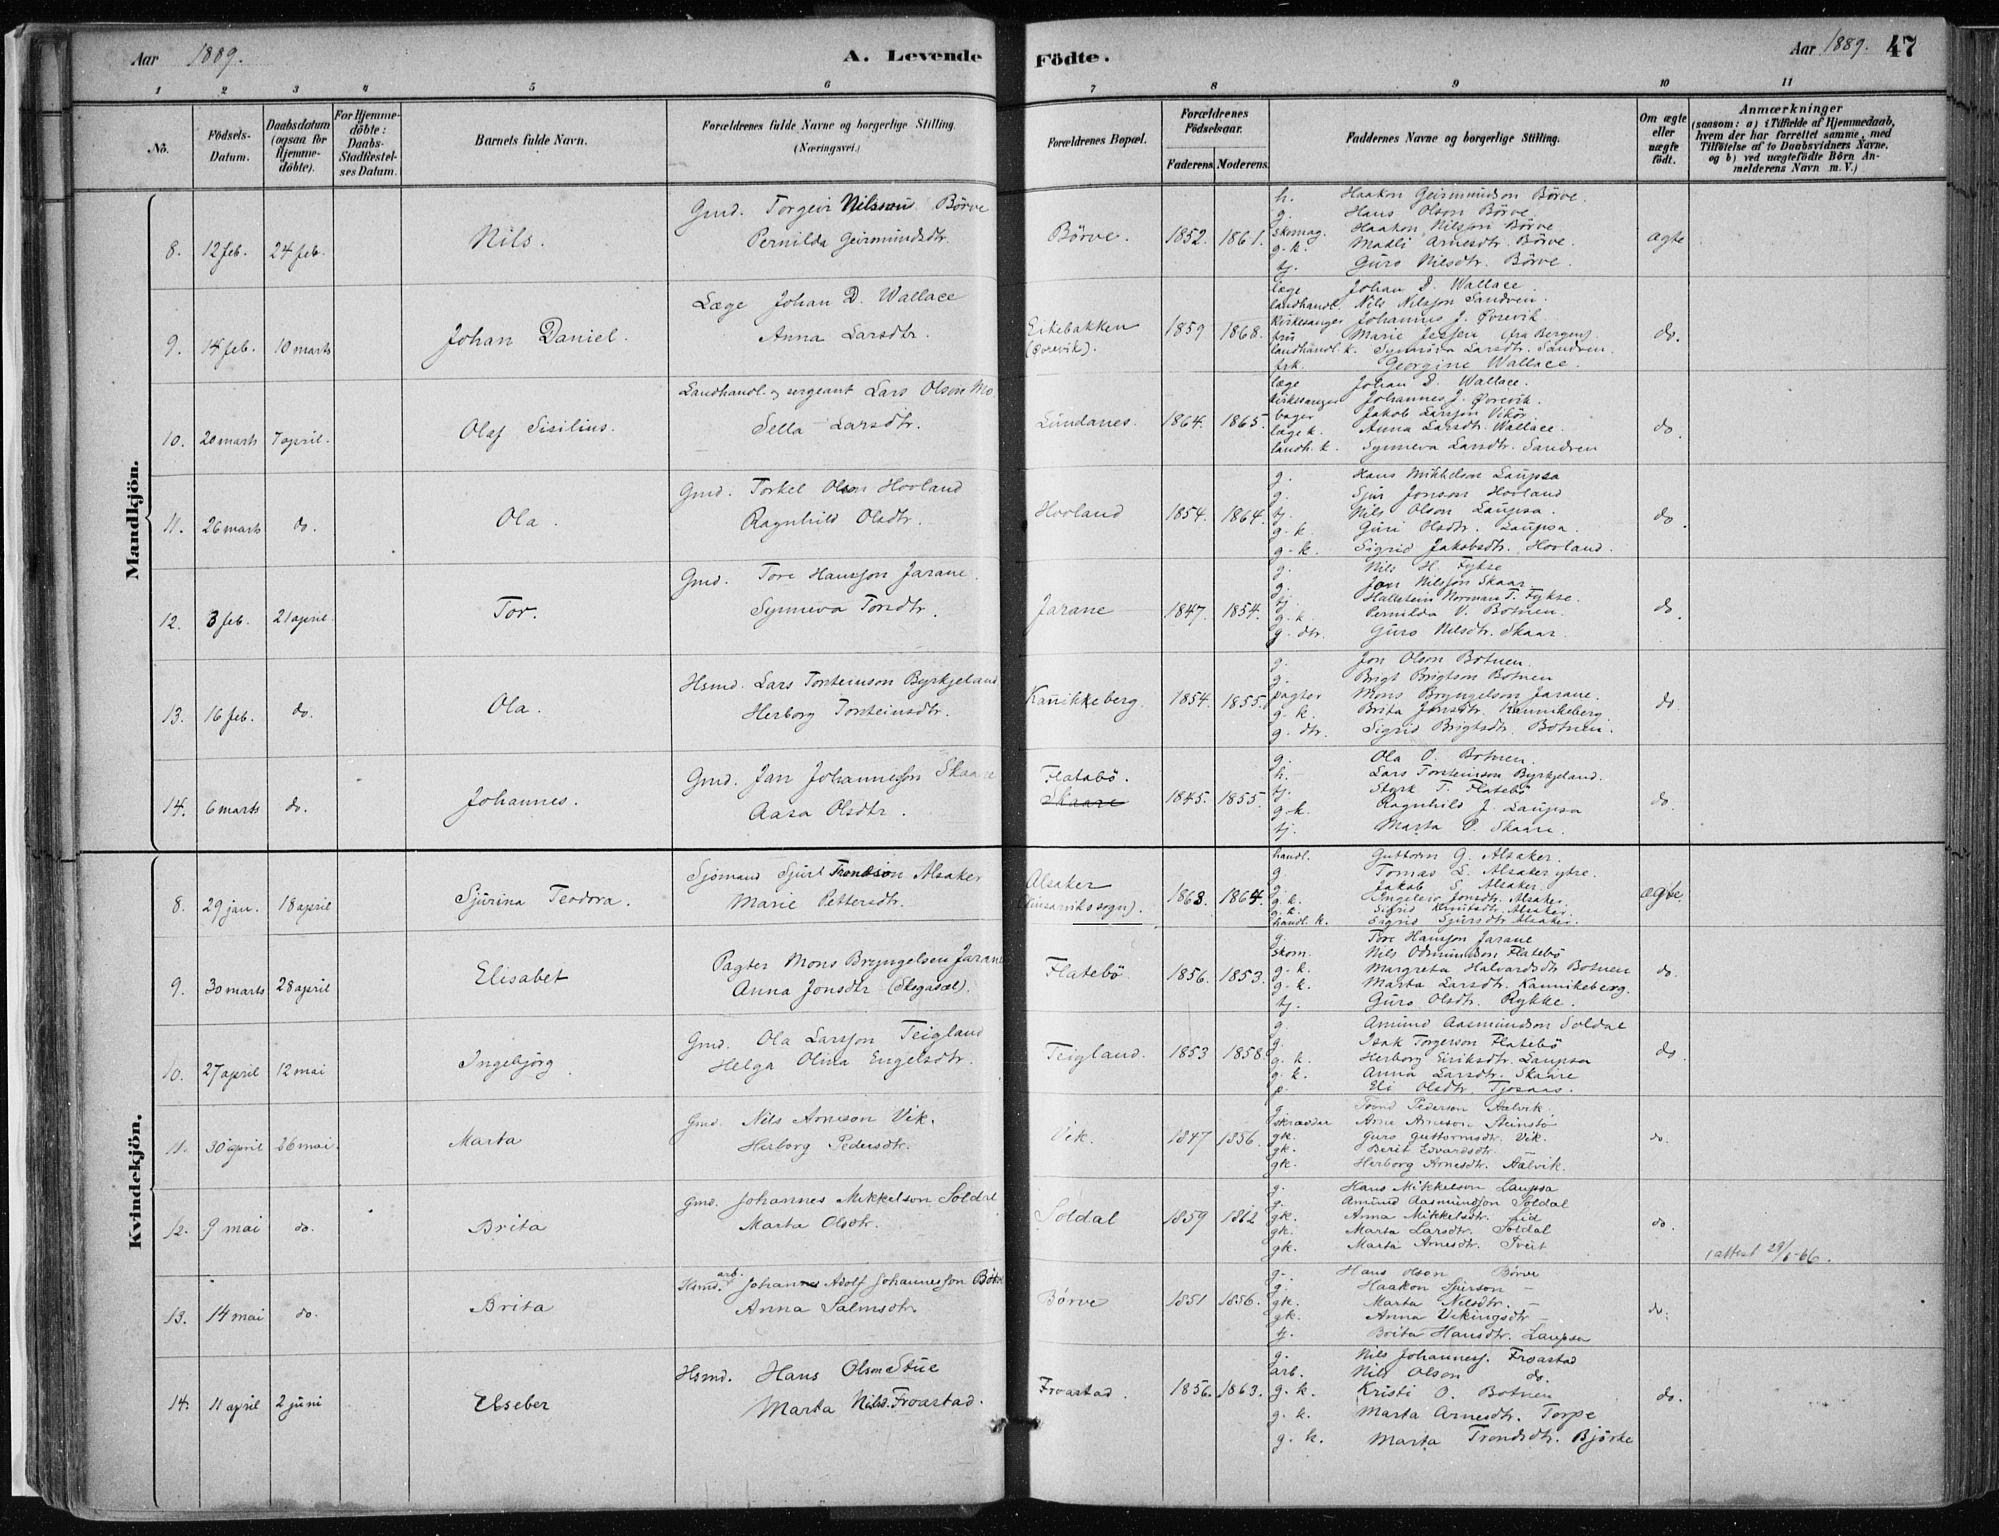 Aar 1889.
A. Levende Födte.
Aar 1889. 47
1 2 3 4 5 6 7 8 9 10 11
No.
Födsels-Datum.
Daabsdatum (ogsaa for Hjemme-döbte).
For Hjemme-döbte: Daabs-Stadfæstel-ses Datum.
Barnets fulde Navn.
Forældrenes fulde Navne og borgerlige Stilling. (Næringsvei.)
Forældrenes Bopæl.
Forældrenes Födselsaar.
Faderens Moderens.
Faddernes Navne og borgerlige Stilling.
Om ægte eller uægte födt.
Anmærkninger
(saasom: a) i Tilfælde af Hjemmedaab, hvem der har forrettet samme, med Tilföielse af to Daabsvidners Navne, og b) ved uægtefödte Börn An-melderens Navn m. V.)
Mandkjön.
8. 12 feb. 24 feb. Nils.
Gmd. Torgeir Nilssøn Börve
Pernilda Geirmundsdtr.
Börve. 1852. 1861.
h. Haakon Geirmundson Börve.
g. Hans Olson Börve.
skomag. Haakon Nilsson Börve
g. k. Madli Arnesdtr. Börve.
tj. Guro Nilsdtr. Börve.
ægte
9. 14 feb. 10 marts Johan Daniel.
Læge Johan D. Wallace
Anna Larsdtr.
Eikebakken (Øvrevik). 1859 1868.
læge Johan D. Wallace.
landhandl. Nils Nilsson Sandven.
Kirkesanger Johannes J. Øvrevik
fru Marie Jessen (fra Bergen)
landhandl. k. Synnöva Larsdtr. Sandven.
frk. Georgine Wallace.
do.
10. 20 marts 7 april. Olaf Sisilius.
Landhandl. og sergeant Lars Olson Mo
Sella Larsdtr.
Lundanes. 1864. 1865.
læge Johan D. Wallace.
Kirkesanger Johannes J. Øvrevik.
bager Jakob Larsson Vikör.
læge k. Anna Larsdtr. Wallace.
landh. k. Synneva Larsdtr. Sandven
do.
11. 26 marts do. Ola.
Gmd. Torkel Olson Hovland
Ragnhild Olsdtr.
Hovland 1854. 1864.
g. Hans Mikkelson Laupsa
g. Sjur Jonson Hovland
tj. Nils Olson Laupsa.
g. k Guri Olsdtr. Laupsa.
g. k. Sigrid Jakobsdtr. Hovland.
do.
12. 3 feb. 21 april. Tor.
Gmd. Tore Hansson Jarane.
Synneva Torsdtr.
Jarane 1847. 1854.
g. Nils H. Fykse
g. Jon Nilsson Skaar.
tj. Hallstein Norman T. Fykse.
g. k Pernilda V. Botnen.
g. dtr. Guro Nilsdtr. Skaar.
do
13. 16 feb. do. Ola.
Hsmd. Lars Torsteinson Byrkjeland
Herborg Torsteinsdtr.
Kannikkeberg 1854. 1855.
g. Jon Olson Botnen.
g. Brigt Brigtson Botnen
pagter Mons Bryngelson Jarane.
g. k. Brita Jonsdtr. Kannikeberg.
g. dtr. Sigrid Brigtsdtr. Botnen.
do
14. 6 marts do. Johannes.
Gmd. Jan Johannesson Skaare
Aasa Olsdtr.
Flatebö. Skaare 1845. 1855.
g. Ola O. Botnen.
h. Lars Torsteinson Byrkjeland.
tj. Styrk T. Flatebö
g. k. Ragnhild J. Laupsa
tj. Marta O. Skaare.
do.
Kvindekjön.
8. 29 jan. 18 april Sjurina Teodora.
Sjömand Sjurt Trondson Alsaker
Marie Pettersdtr.
Alsaker (Kinsarviks sogn). 1863. 1864.
handl. Guttorm G. Alsaker.
g Tomas L. Alsaker ytre.
g. Jakob S. Alsaker.
g. k. Ingeleiv Jonsdtr. Alsaker.
g. k. Sigrid Knutsdtr. Alsaker
handl. k. Sigrid Sjursdtr. Alsaker.
ægte.
9. 30 marts 28 april Elisabet
Pagter Mons Bryngelsen Jarane
Anna Jonsdtr (Skogasæl).
Flatebö. 1856. 1853.
g. Tore Hansson Jarane
skom. Nils Odmundson Flatebö
g. k. Margreta Halvardsdtr Botnen
g. k. Marta Larsdtr. Kannikeberg.
tj. Guro Olsdtr. Rykke.
do.
10. 27 april 12 mai Ingebjörg.
Gmd. Ola Larsson Teigland
Helga Olina Engelsdtr.
Teigland. 1853 1858
g. Amund Aasmundson Soldal
g. Isak Torgerson Flatebö
g. k. Herborg Eiriksdtr. Laupsa
g. k. Anna Larsdtr. Skaare
p. Eli Olsdtr. Tjosaas.
do.
11. 30 april 26 mai. Marta
Gmd. Nils Arneson Vik.
Herborg Pedersdtr.
Vik. 1847 1856.
g. Trond Pederson Aalvik.
skrædder Arne Arneson Steinstö
gk. Guro Guttormsdtr. Vik.
gk. Berit Edvardsdtr.
gk. Herborg Arnesdtr. Aalvik.
do.
12. 9 mai do. Brita
Gmd. Johannes Mikkelson Soldal
Marta Olsdtr.
Soldal 1859 1862
g. Hans Mikkelson Laupsa
g. Amund Aasmundson Soldal
gk. Anna Mikkelsdtr. Lid
gk. Marta Larsdtr. Soldal
gk. Marta Arnesdtr. Tveit
do.
1 attest 28/5-66.
13. 14 mai do. Brita
Hsmd. arb. Johannes Adolf Johannesson Börve
Anna Salmsdtr.
Börve 1851 1856.
g. Hans Olson Börve
g. Haakon Sjurson –
gk. Marta Nilsdtr. –
gk. Anna Vikingsdtr –
tj. Brita Hansdtr. Laupsa
do.
14. 11 april 2 juni Elseber
Hsmd. Hans Olson Stue
Marta Nilsd. Froastad.
Froastad. 1856. 1863.
g. Nils Johanness. Froastad
arb. Nils Olson do.
g. k. Kristi O. Botnen
g. k. Marta Arnesdtr. Torpe
g. k. Marta Trondsdtr. Bjørke
do.